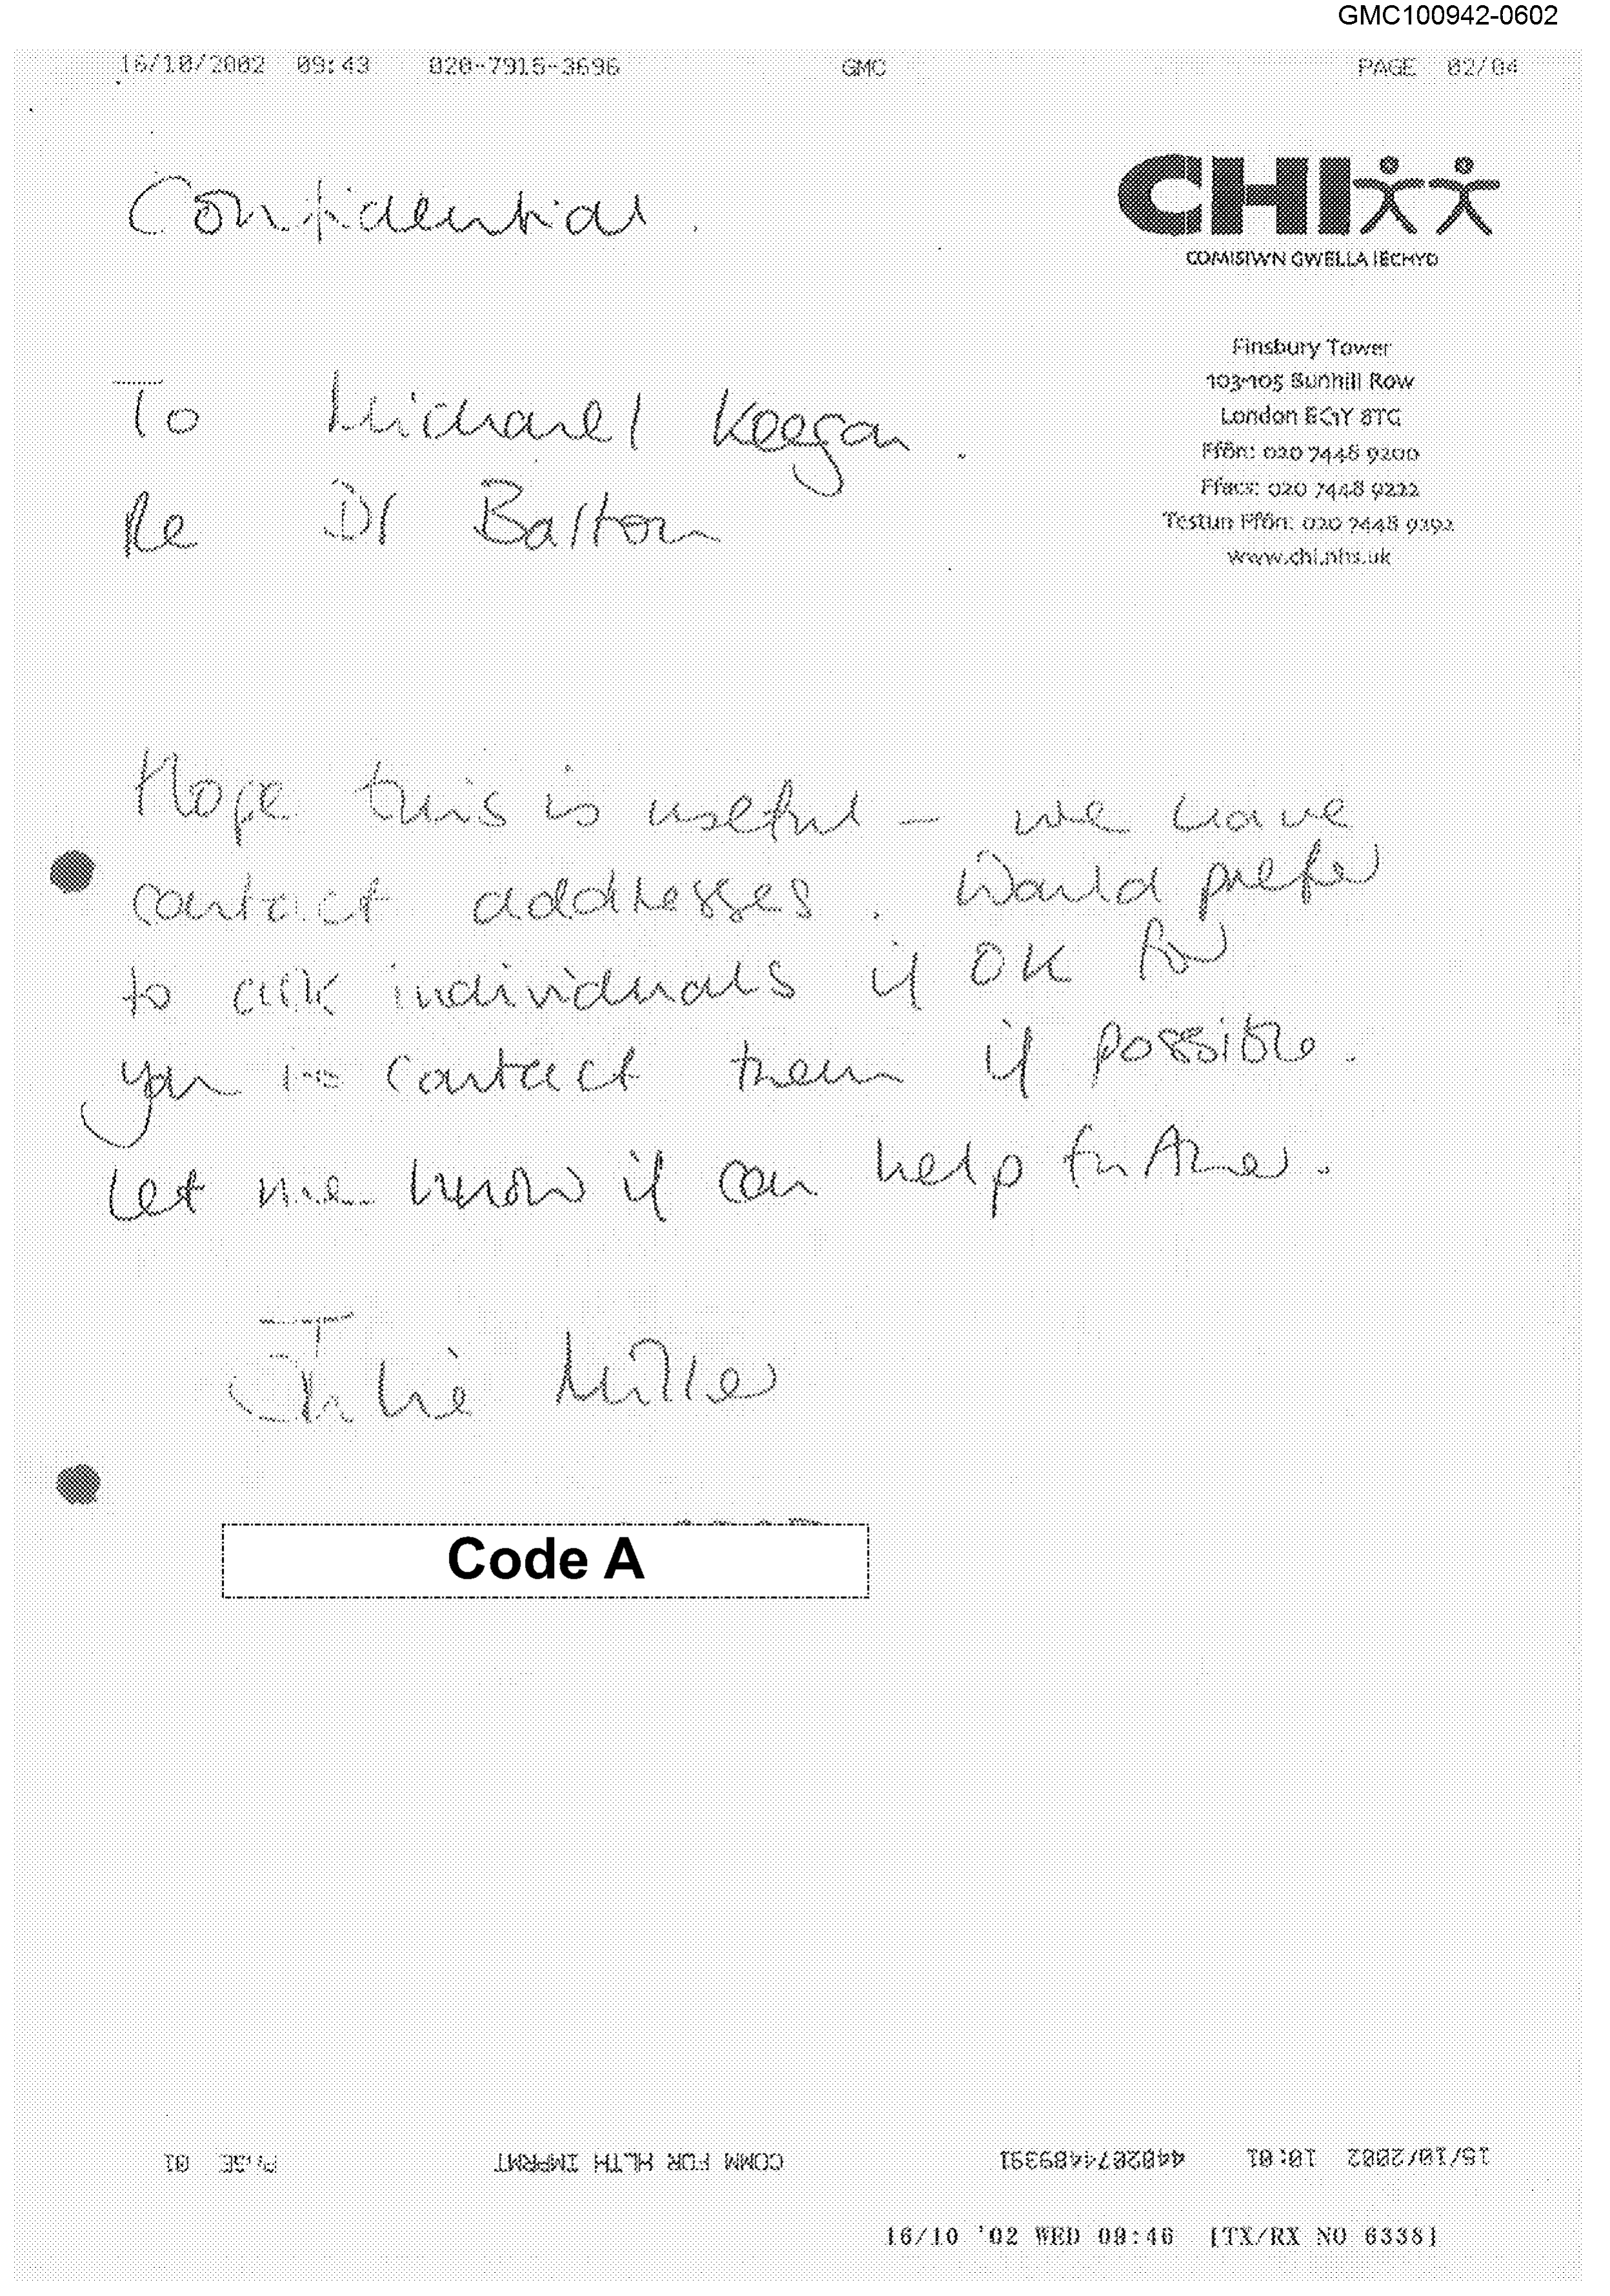 GMC100942-0602
16/10/2002 09:43 020-7915-3696 GMC PAGE 02/04
Confidential.
CHI
COMISIWN GWELLA IECHYD
Finsbury Tower
103-105 Bunhill Row
London EC1Y 8TG
Ffôn: 020 7448 9200
Ffacs: 020 7448 9222
Testun Ffôn: 020 7448 9292
www.chi.nhs.uk
To Michael Keegan.
Re Dr Barton
Hope this is useful - we have
contact addresses. Would prefer
to ask individuals if OK for
you to contact them if possible.
Let me know if can help further.
Julie Miller
Code A
15/10/2002 10:01 4402074489391 COMM FOR HLTH IMPRMT PAGE 01
16/10 '02 WED 09:46 [TX/RX NO 6338]